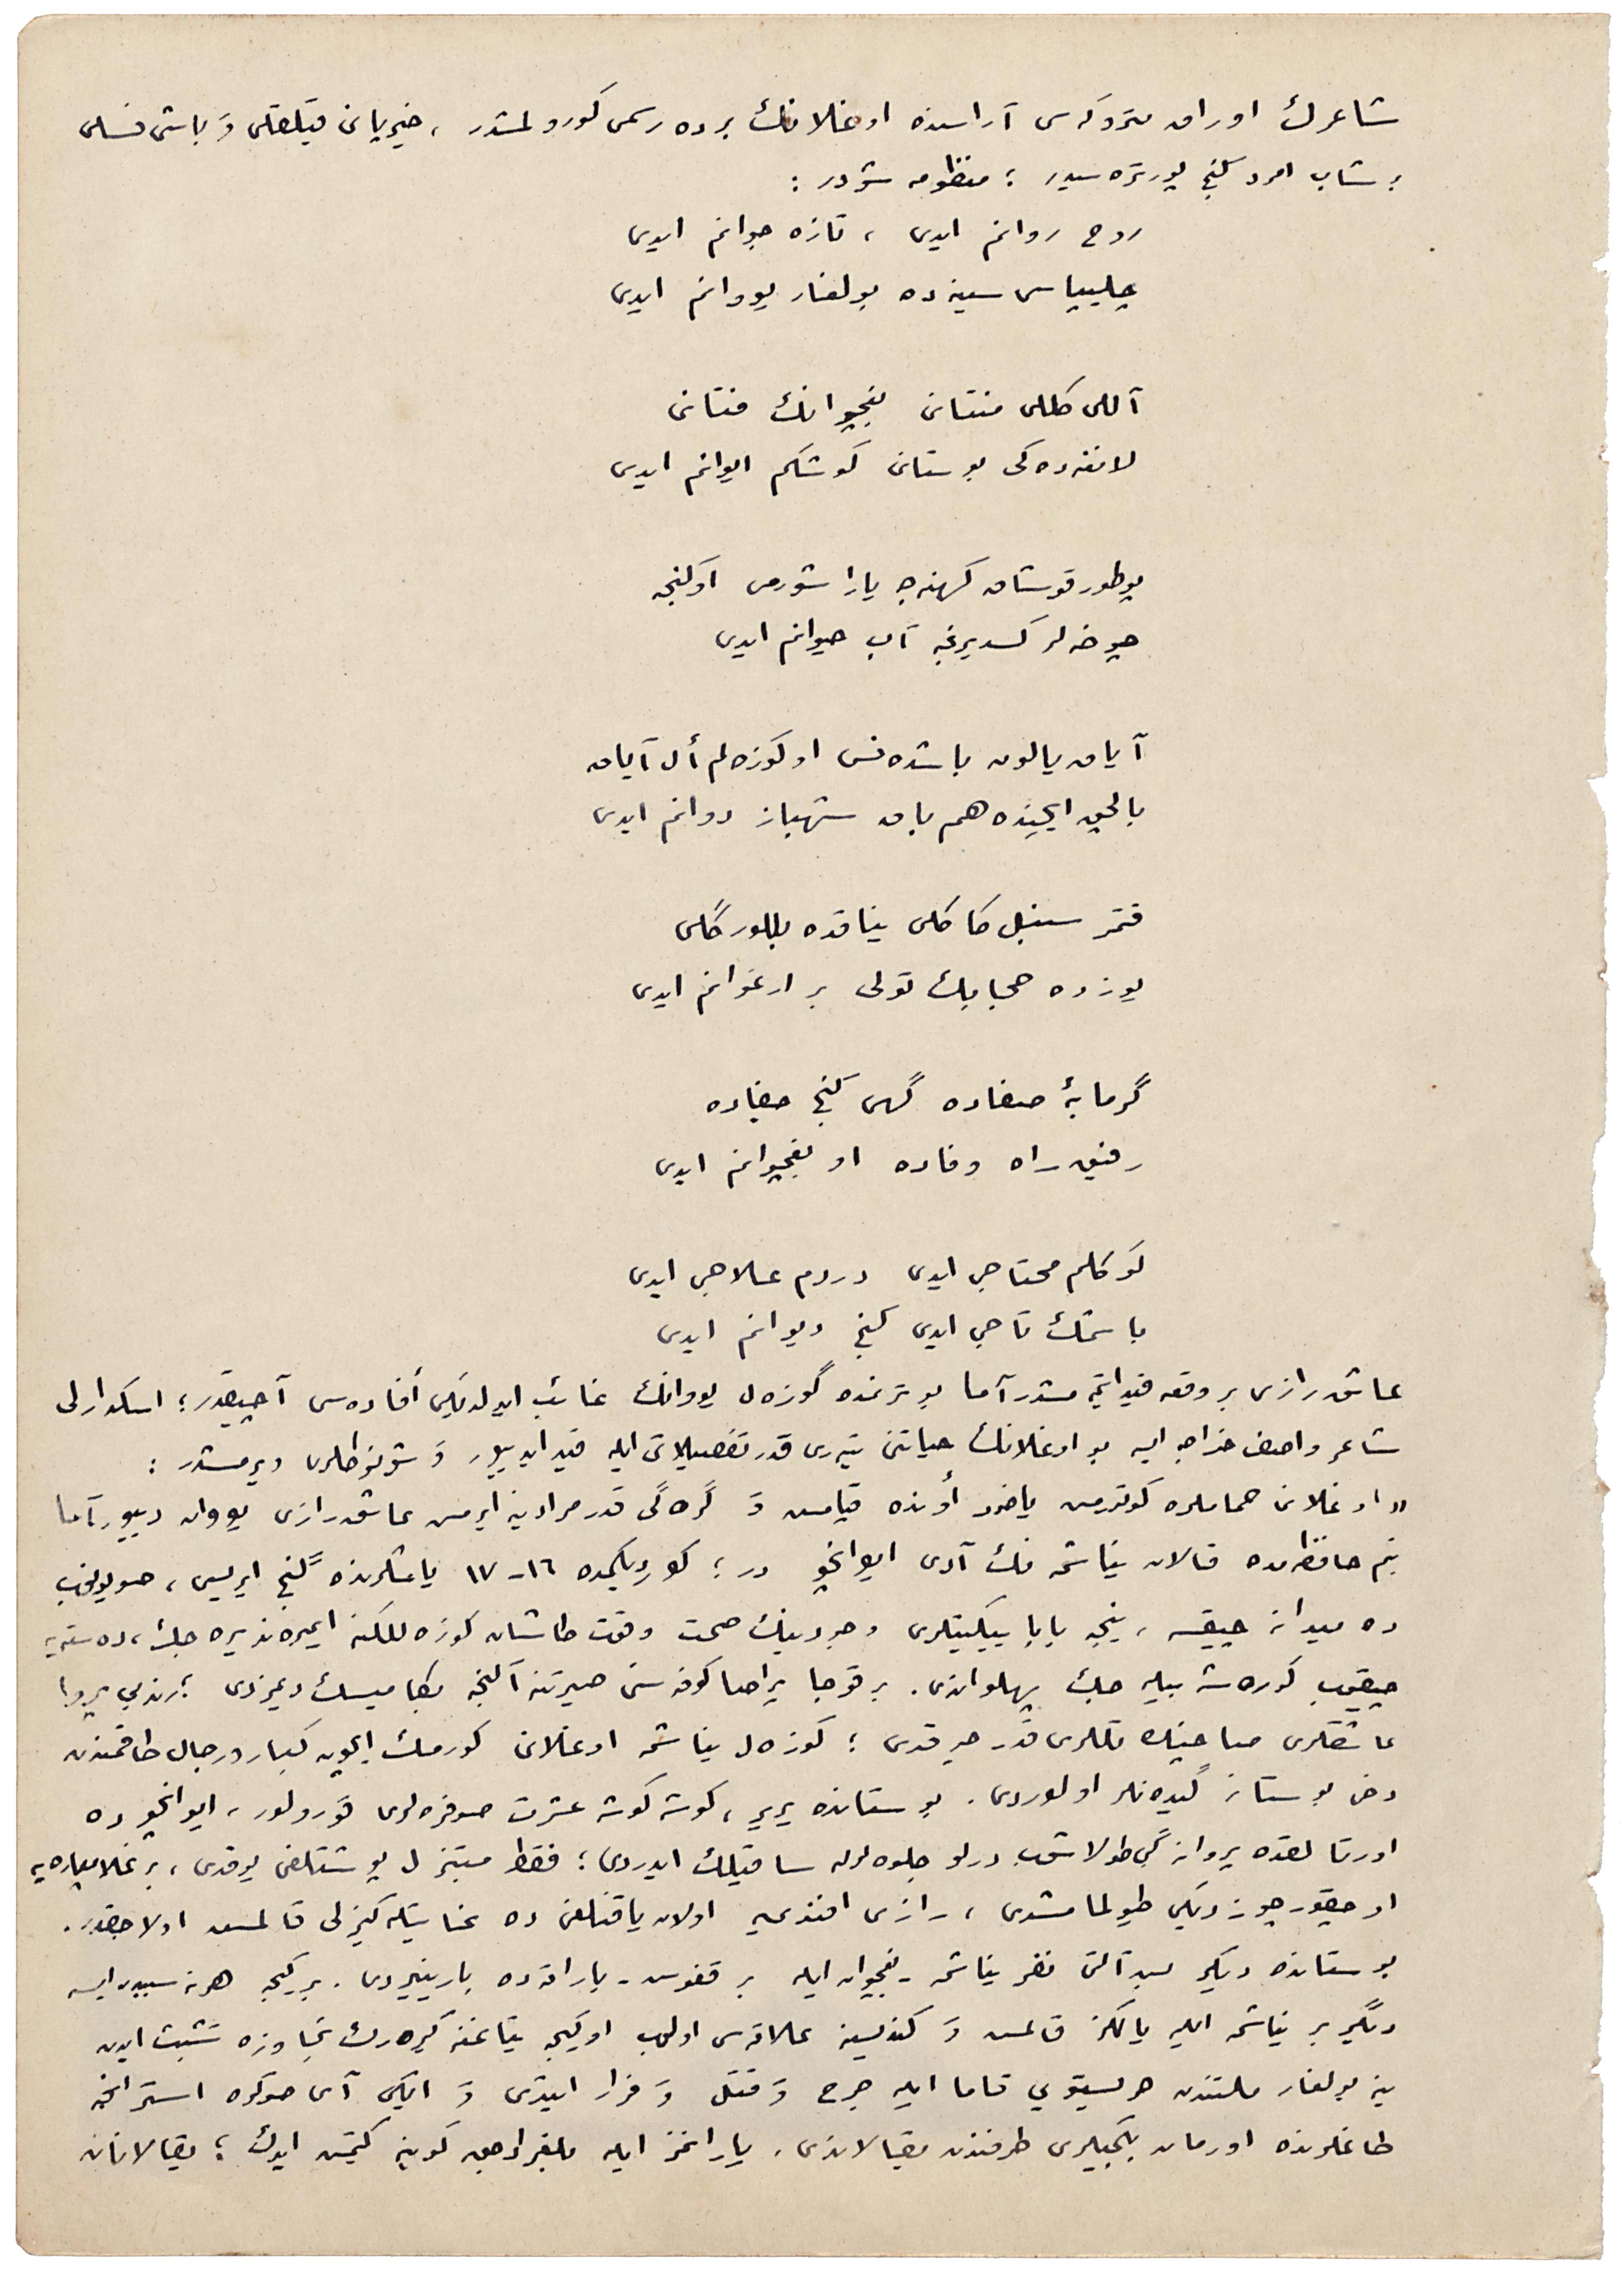 شاعرك اوراق متروكه سى آراسنده اوغلانك برده رسمى كورولمشدر ، خيرپانى قيلقلى وَ باشى فسلى
بر شاب امرد كنج پورتره سيدر ؛ منظومه شودر :
روح روانم ايدى ، تازه جوانم ايدى
چليپاسى سينه ده بولغار يووانم ايدى
آللى كللى منتانى بغچوانك فتانى
لانغه ده كى بوستانى كوشكم ايوانم ايدى
پوطور قوشاق كهنه جه ياراشورمى اوكنجه
چوخه لر كسديرنجه آب حيوانم ايدى
آياق يالين باشده فس او كوزه لم أل آياق
بالچق ايچنده هم باق شهباز دوانم ايدى
قتمر سنبل كاكلى يناقده بللور كلى
يوزده حجابك تولى بر ارغوانم ايدى
گرمابهٔ صفاده گهى كنج جفاده
رفيق راه وفاده او بغچوانم ايدى
كوكلم محتاجى ايدى دردم علاجى ايدى
باشمك تاجى ايدى كنج ديوانم ايدى
عاشق رازى بر وقعه قيد ايتمه مشدر آما بو ترنمده گوزه ل يووانك غائب ايدلديكى أفاده سى آچيقدر ؛ اسكدارلى
شاعر واصف خواجه ايسه بو اوغلانك حياتنى يترى قدر تفصيلاتى ايله قيد ايدييور وَ شو نوطلرى ويرمشدر :
« اوغلانى حماملره كوتورمش ياخود أونده قپامش وَ گره گى قدر مرادينه ايرمش عاشق رازى يووان دييور آما
بنم حافظه مده قالان يناشمه نك آدى ايوانچو در ؛ كورديكمده ١٦-١٧ ياشلرنده گنج ايريسى ، صويونوب
ده ميدانه چيقسه ، نيجه بابا ييكيتلرى وجودينك صحت وقوت طاشان كوزه للكنه ايمره نديره جك ، ده سته يه
چيقوب كوره شه بيله جك پهلواندى . بر قوجا پراصا كوفه سنى صيرتنه آلنجه بكا ميسك ديمزدى ؛ رندبى پروا
عاشقلرى صاچينك تللرى قدر چوقدى ؛ كوزه ل يناشمه اوغلانى كورمك ايچون كبار ورجال طاقمندن
دخى بوستانه گيده نلر اولوردى . بوستانده يرير ، كوشه كوشه عشرت صوفره لرى قورولور ، ايوانچو ده
اورتالقده پروانه گبى طولاشوب درلو جلوه لرله ساقيلك ايدردى ؛ فقط مبتذل پوشتلغى يوقدى ، بر غلامپاره يه
اوچقور چوزديكى طويولمامشدى ، رازى افندى يه اولان ياقنلغى ده غايتله كيزلى قالمش اولاجقدر .
بوستانده ديكر بش آلتى نفر يناشمه - بغچوان ايله بر قغوش - بارانه ده بارينيردى . بر كيجه هرنه سببدن ايسه
ديگر بر يناشمه ايله يالكز قالمش وَ كنديسينه علاقه سى اولوب او كيجه يتاغنه كيره رك تجاوزه تشبث ايدن
ينه بولغار ملتندن هريستوي قاما ايله جرح وَ قتل وَ فرار ايتدى وَ ايكى آى صوكره استرانجه
طاغلرنده اورمان بكجيلرى طرفندن يقالاندى . يارانمز ايله بلغرادجق كوينه كيتمش ايدك ؛ يقالانان